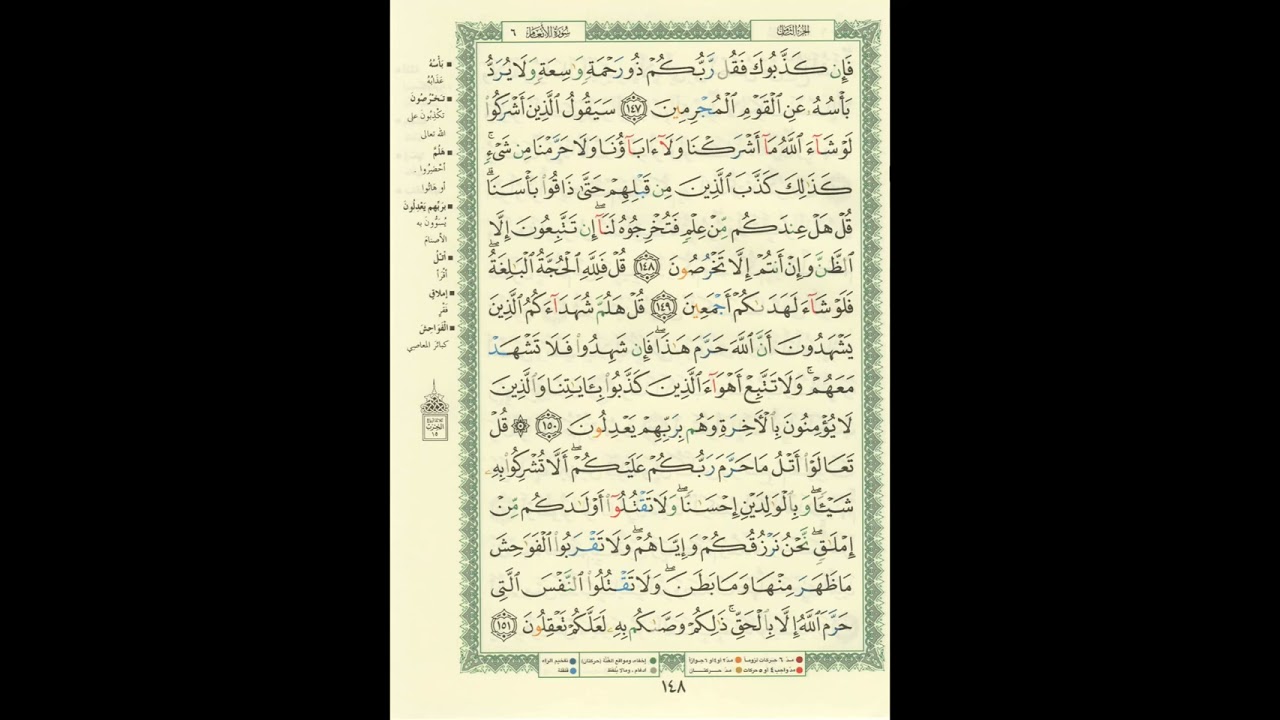 الجزء الثامن
سورة الأنعام ٦
فَإِن كَذَّبُوكَ فَقُل رَّبُّكُمْ ذُو رَحْمَةٍ وَاسِعَةٍ وَلَا يُرَدُّ
بَأْسُهُ عَنِ الْقَوْمِ الْمُجْرِمِينَ ١٤٧ سَيَقُولُ الَّذِينَ أَشْرَكُوا
لَوْ شَاءَ اللَّهُ مَا أَشْرَكْنَا وَلَا ءَابَاؤُنَا وَلَا حَرَّمْنَا مِن شَيْءٍ ۚ
كَذَٰلِكَ كَذَّبَ الَّذِينَ مِن قَبْلِهِمْ حَتَّىٰ ذَاقُوا بَأْسَنَا ۗ
قُلْ هَلْ عِندَكُم مِّنْ عِلْمٍ فَتُخْرِجُوهُ لَنَا ۖ إِن تَتَّبِعُونَ إِلَّا
الظَّنَّ وَإِنْ أَنتُمْ إِلَّا تَخْرُصُونَ ١٤٨ قُلْ فَلِلَّهِ الْحُجَّةُ الْبَالِغَةُ ۖ
فَلَوْ شَاءَ لَهَدَىٰكُمْ أَجْمَعِينَ ١٤٩ قُلْ هَلُمَّ شُهَدَاءَكُمُ الَّذِينَ
يَشْهَدُونَ أَنَّ اللَّهَ حَرَّمَ هَٰذَا ۖ فَإِن شَهِدُوا فَلَا تَشْهَدْ
مَعَهُمْ ۚ وَلَا تَتَّبِعْ أَهْوَاءَ الَّذِينَ كَذَّبُوا بِـَٔايَٰتِنَا وَالَّذِينَ
لَا يُؤْمِنُونَ بِالْآخِرَةِ وَهُم بِرَبِّهِمْ يَعْدِلُونَ ١٥٠ ۞ قُلْ
تَعَالَوْا أَتْلُ مَا حَرَّمَ رَبُّكُمْ عَلَيْكُمْ ۖ أَلَّا تُشْرِكُوا بِهِ
شَيْـًٔا ۖ وَبِالْوَٰلِدَيْنِ إِحْسَٰنًا ۖ وَلَا تَقْتُلُوا أَوْلَٰدَكُم مِّنْ
إِمْلَٰقٍ ۖ نَّحْنُ نَرْزُقُكُمْ وَإِيَّاهُمْ ۖ وَلَا تَقْرَبُوا الْفَوَاحِشَ
مَا ظَهَرَ مِنْهَا وَمَا بَطَنَ ۖ وَلَا تَقْتُلُوا النَّفْسَ الَّتِي
حَرَّمَ اللَّهُ إِلَّا بِالْحَقِّ ۚ ذَٰلِكُمْ وَصَّىٰكُم بِهِ لَعَلَّكُمْ تَعْقِلُونَ ١٥١
بَأْسُهُ
عَذَابُهُ
تَخْرُصُونَ
تَكْذِبُونَ على
الله تعالى
هَلُمَّ
أَحْضِرُوا
أو هَاتُوا
بِرَبِّهِم يَعْدِلُونَ
يُسَوُّونَ به
الأصنامَ
أَتْلُ
أَقْرَأ
إملاقٍ
فَقْرٍ
الْفَوَاحِشَ
كبائرَ المعاصي
الحزب
١٥
مدّ ٦ حركات لزوماً
مدّ ٢ أو ٤ أو ٦ جوازاً
إخفاء، ومواقع الغُنَّة (حركتان)
تفخيم الراء
مدّ واجب ٤ أو ٥ حركات
مدّ حركتان
ادغام، وما لا يُلفَظ
قلقلة
١٤٨